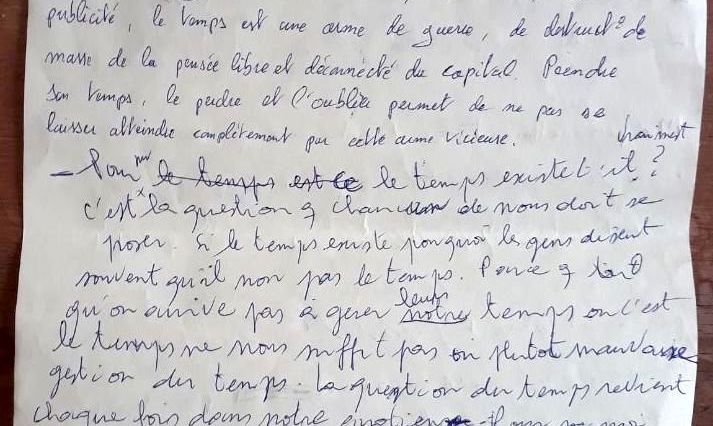 publicité, le temps est une arme de guerre, de destruct° de
masse de la pensée libre et déconnecté du capital. Prendre
son temps, le perdre et l'oublier permet de ne pas se
laisser atteindre complètement par cette arme vicieuse.
vraiment
– Pour moi le temps est ce le temps existe t'il ?
c'est la question q chacun de nous doit se
poser. Si le temps existe pourquoi les gens disent
souvent qu'il non pas le temps. Parce q
qu'on arrive pas à gerer leurs notre temps ou c'est
le temps ne nous suffit pas ou plutot mauvaise
gestion du temps. La question du temps revient
chaque fois dans notre